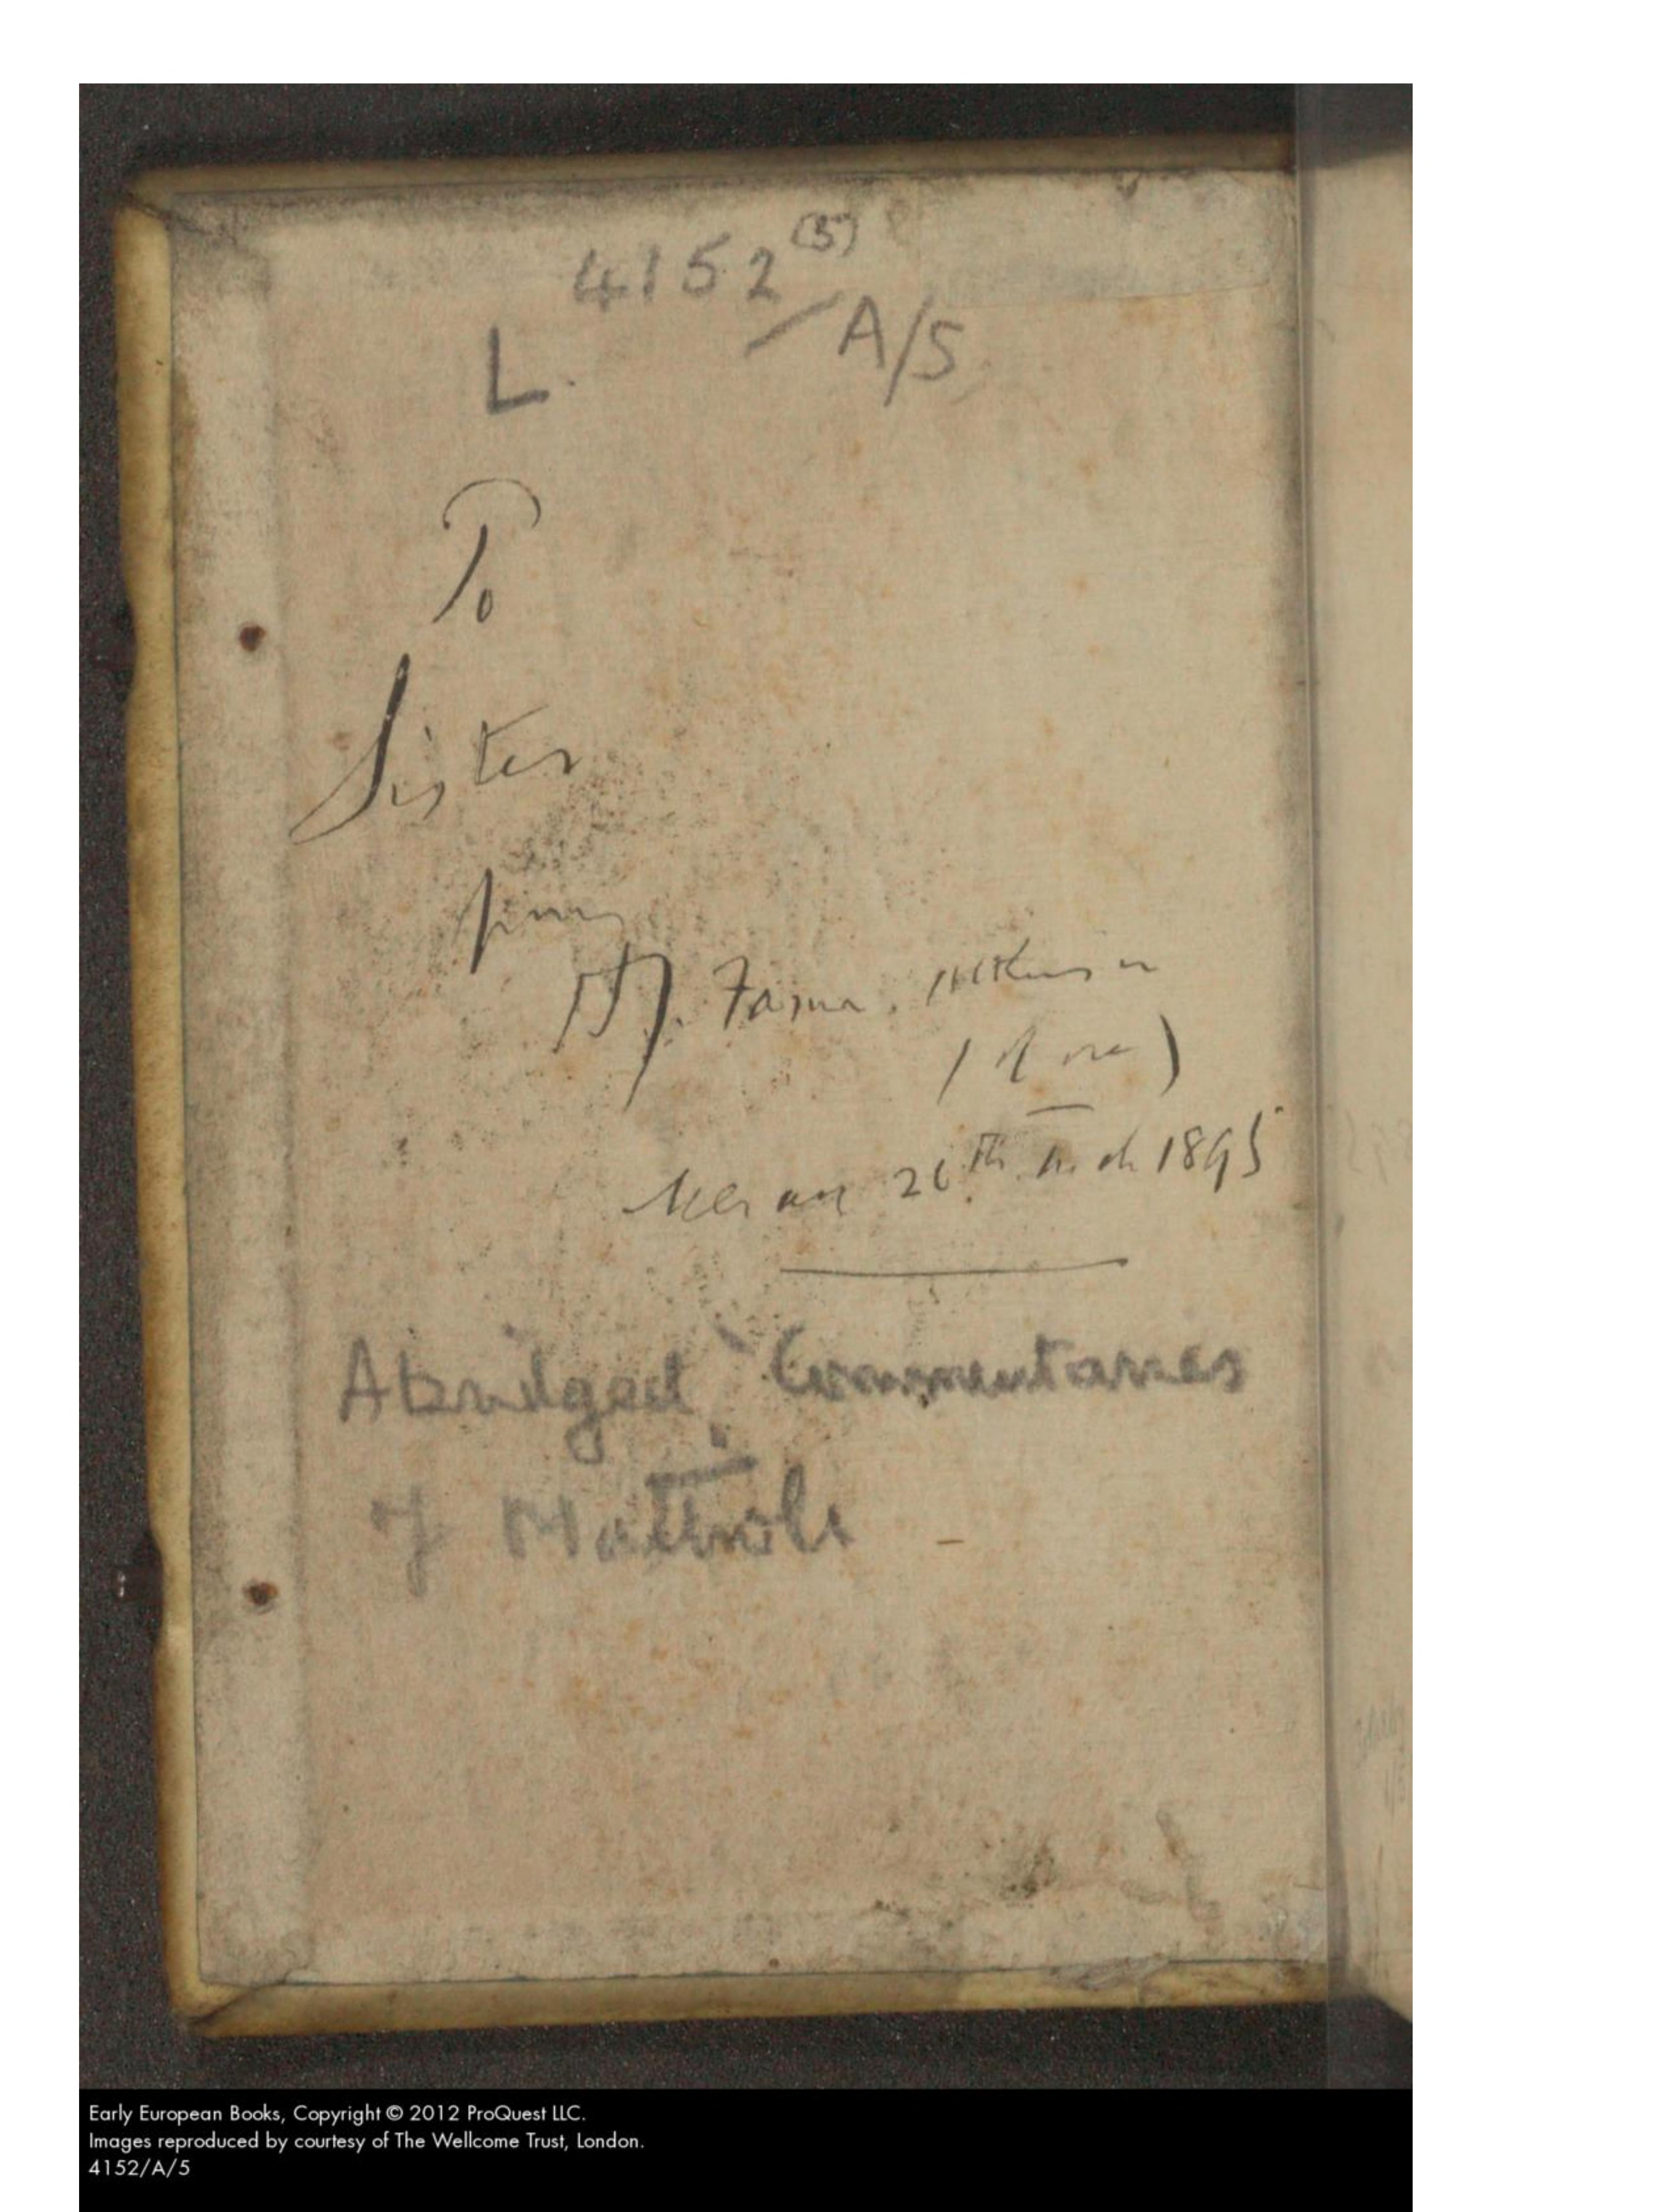 4152 (5)
A/5
L.
To
Sister
from
26th March 1895
Abridged Commentaries
of Mattioli
Early European Books, Copyright © 2012 ProQuest LLC.
Images reproduced by courtesy of The Wellcome Trust, London.
4152/A/5